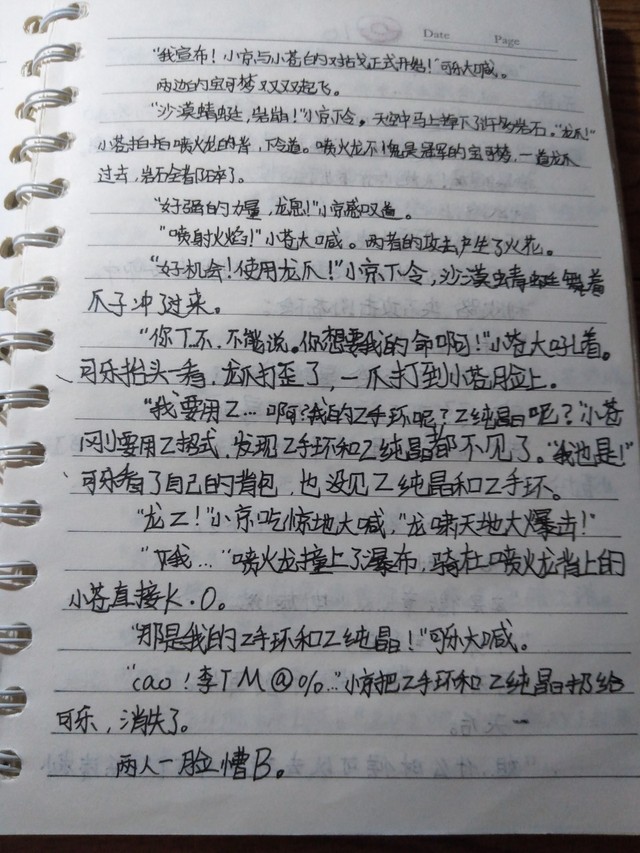 Date Page
"我宣布！小京与小苍的对战正式开始！"可乐大喊。
两边的宝可梦双双起飞。
"沙漠蜻蜓，岩崩！"小京下令，天空中马上掉下了许多岩石。"龙爪！"
小苍拍拍喷火龙的背，下令道。喷火龙不愧是冠军的宝可梦，一道龙爪
过去，岩石全都碎了。
"好强的力量，龙息！"小京感叹道。
"喷射火焰！"小苍大喊。两者的攻击产生了火花。
"好机会！使用龙爪！"小京下令，沙漠蜻蜓舞着
爪子冲了过来。
"你丫不，不能说。你想要我的命啊！"小苍大吼着。
可乐抬头一看，龙爪打歪了，一爪打到小苍脸上。
"我要用Z…啊？我的Z手环呢？Z纯晶呢？"小苍
刚要用Z招式，发现Z手环和Z纯晶都不见了。"我也是！"
可乐看了自己的背包，也没见Z纯晶和Z手环。
"龙Z！"小京吃惊地大喊，"龙啸天地大爆击！"
"哦…"喷火龙撞上了瀑布，骑在喷火龙背上的
小苍直接K.O。
"那是我的Z手环和Z纯晶！"可乐大喊。
"cao！李TM@0%…"小京把Z手环和Z纯晶扔给
可乐，消失了。
两人一脸懵B。